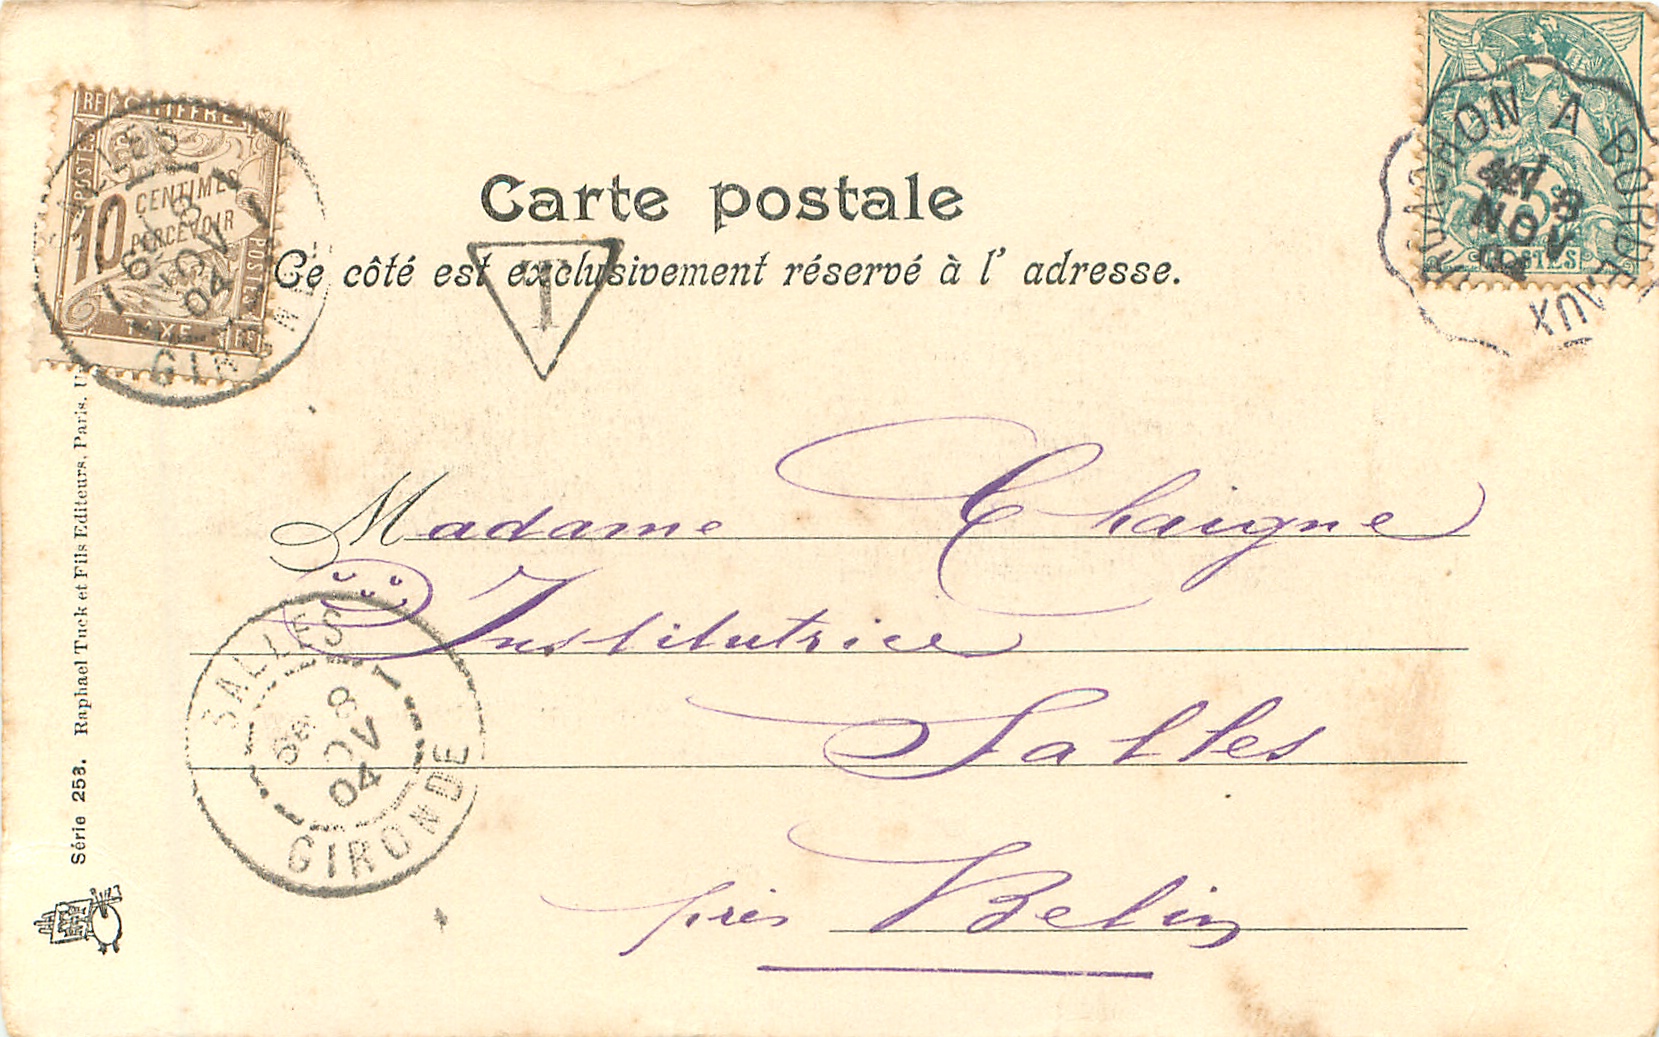 RF CHIFFRE
POSTES
10 CENTIMES
PERCEVOIR
POSTES
TAXE RF
SALLES
8
NOV
04
GIRONDE
ARCACHON A BORDEAUX
8
NOV
04
5
POSTES
Carte postale
Ce côté est exclusivement réservé à l' adresse.
T
Madame Chaigne
Institutrice
Salles
près Belin
SALLES
8
NOV
04
GIRONDE
Série 258. Raphael Tuck et Fils Editeurs, Paris.